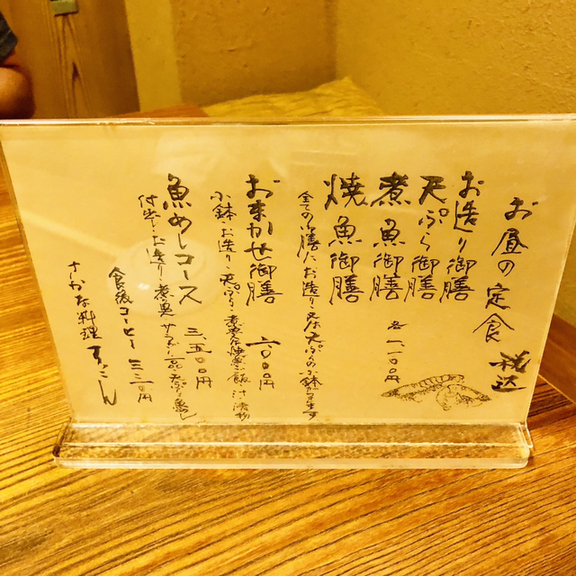 お昼の定食 税込
お造り御膳
天ぷら御膳
煮魚御膳
焼魚御膳
各 一、一〇〇円
全ての御膳にお造り又は天ぷらの小鉢が付きます
おまかせ御膳 二、〇〇〇円
小鉢 お造り 天ぷら 煮魚又は焼魚 ご飯 汁 漬物
魚めしコース 三、五〇〇円
付出し お造り 煮魚
食後コーヒー 三三〇円
さかな料理